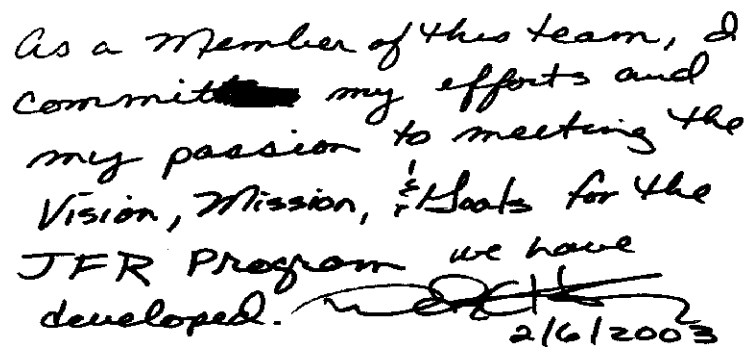 As a Member of this team, I
commit my efforts and
my passion to meeting the
Vision, Mission, & Goals for the
JFR Program we have
developed.
2/6/2003